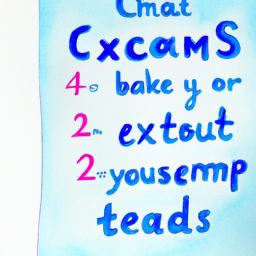 Cmat
CxcamS
4 bake y or
2 extout
2 yousemp
teads